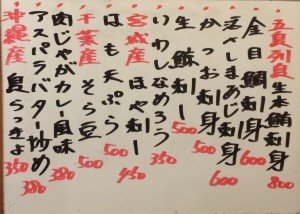 五島列島生本鮪刺 800
金目鯛刺身 600
活〆しまあじ刺身 600
かつお刺身 500
生鯨刺 500
いわしなめろう 350
宮城産ほや刺 450
はも天ぷら 500
千葉産そら豆 500
肉じゃがカレー風味 380
アスパラバター炒め 380
沖縄産島らっきょ 350